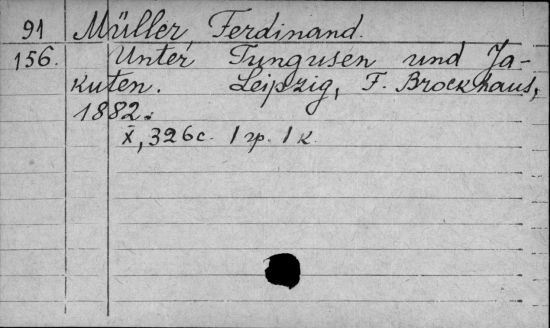 91 Müller, Ferdinand.
156. Unter Tungusen und Ja-
kuten. Leipzig, F. Brockhaus,
1882.
X, 326 c. 1 гр. 1 к.